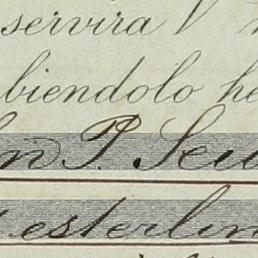 servira
biendolo he
n P. Seu
esterlin